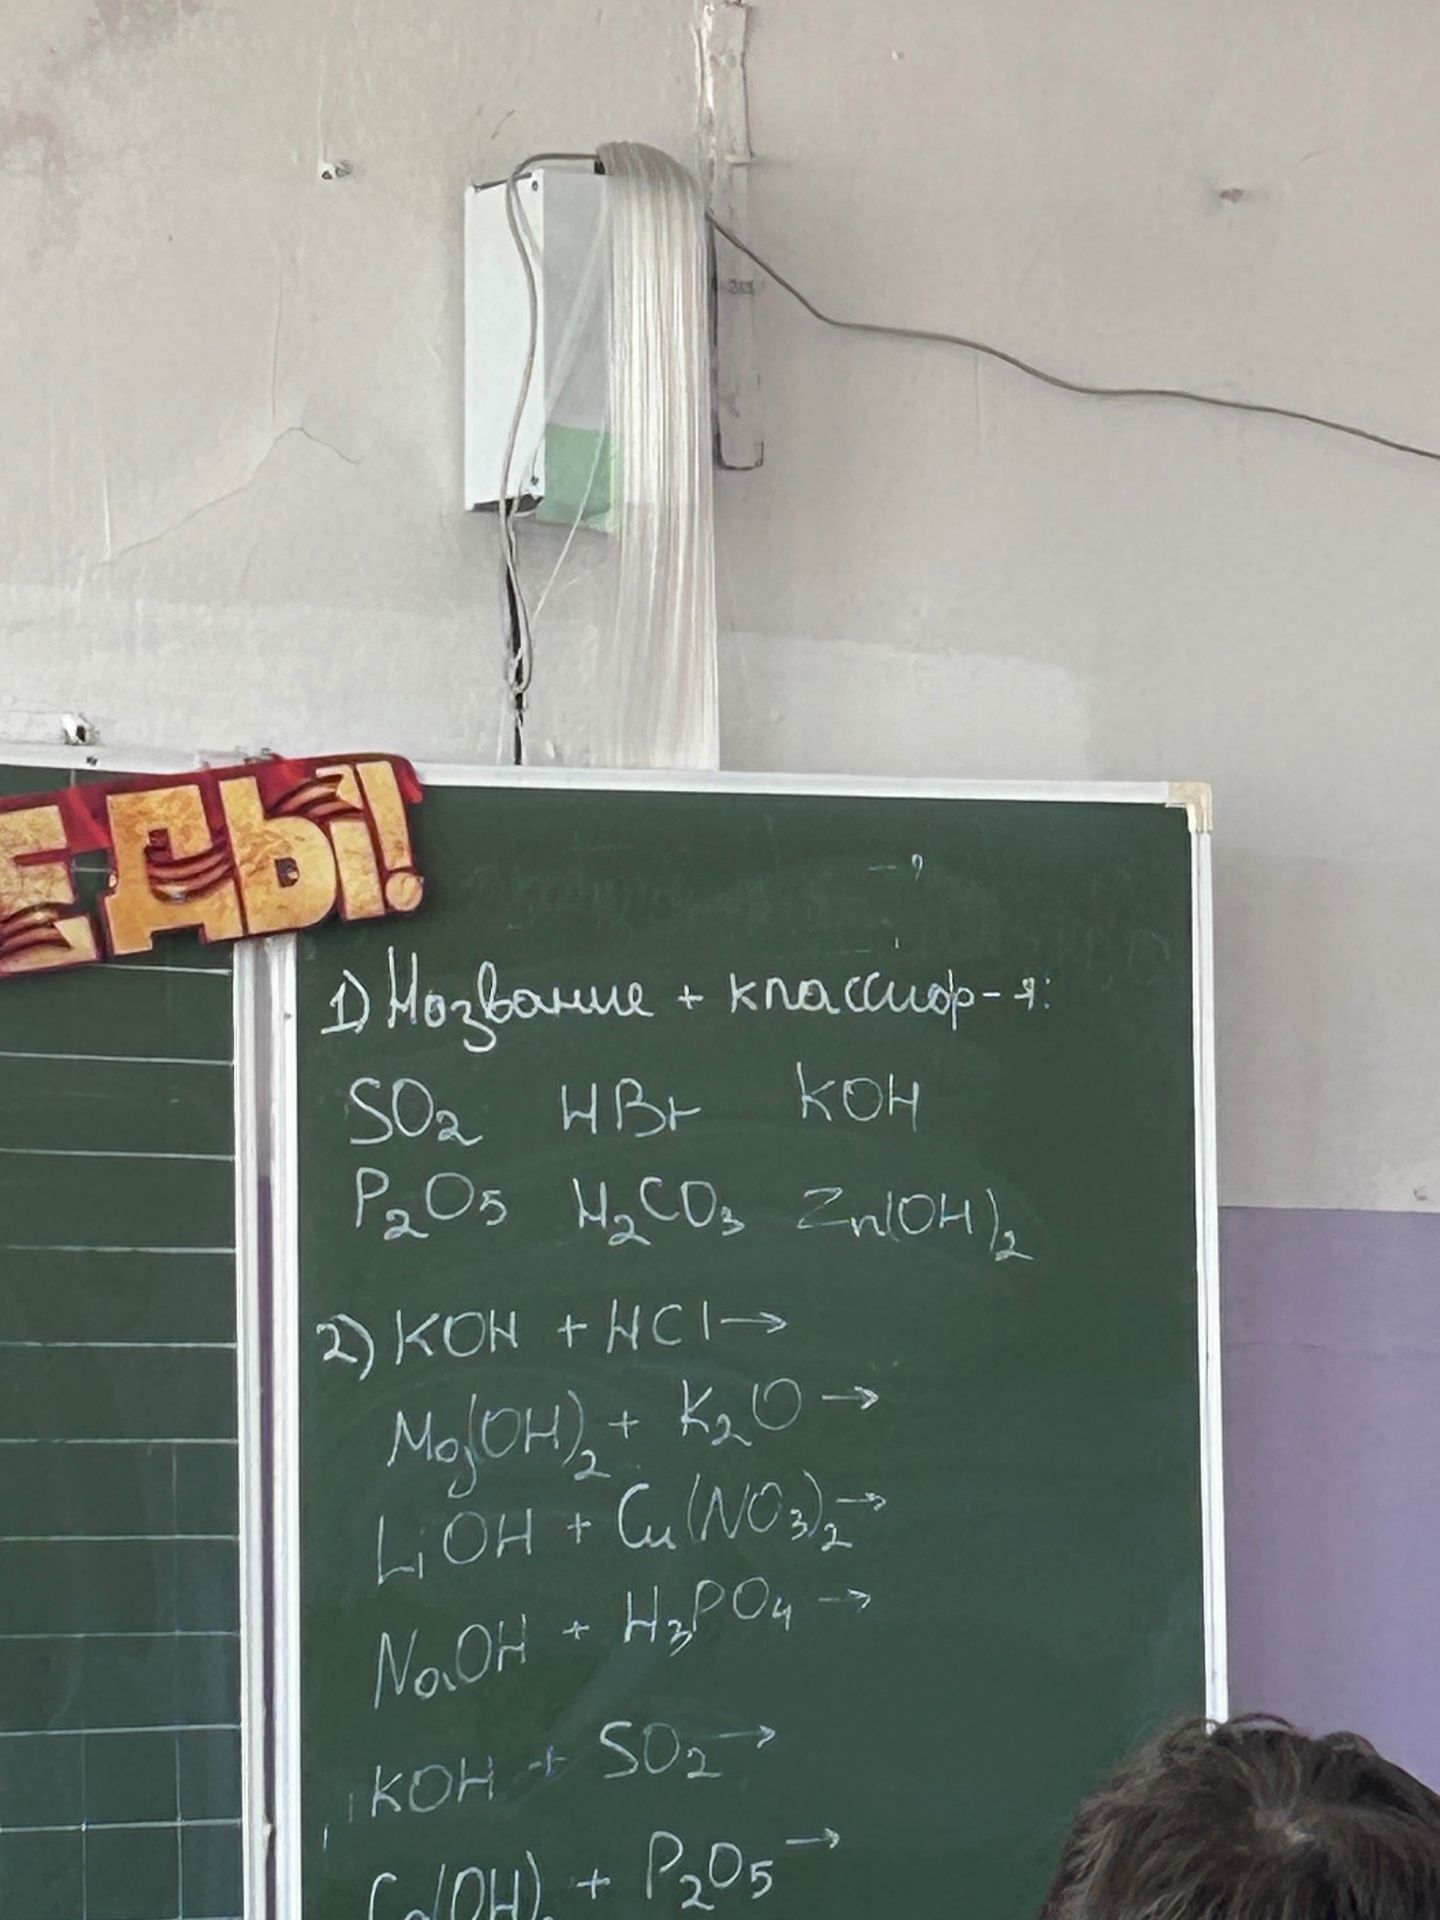 ЕДЫ!
1) Название + классиф-я:
SO₂ HBr KOH
P₂O₅ H₂CO₃ Zn(OH)₂
2) KOH + HCl →
Mg(OH)₂ + K₂O →
LiOH + Cu(NO₃)₂ →
NaOH + H₃PO₄ →
KOH + SO₂ →
Ca(OH)₂ + P₂O₅ →